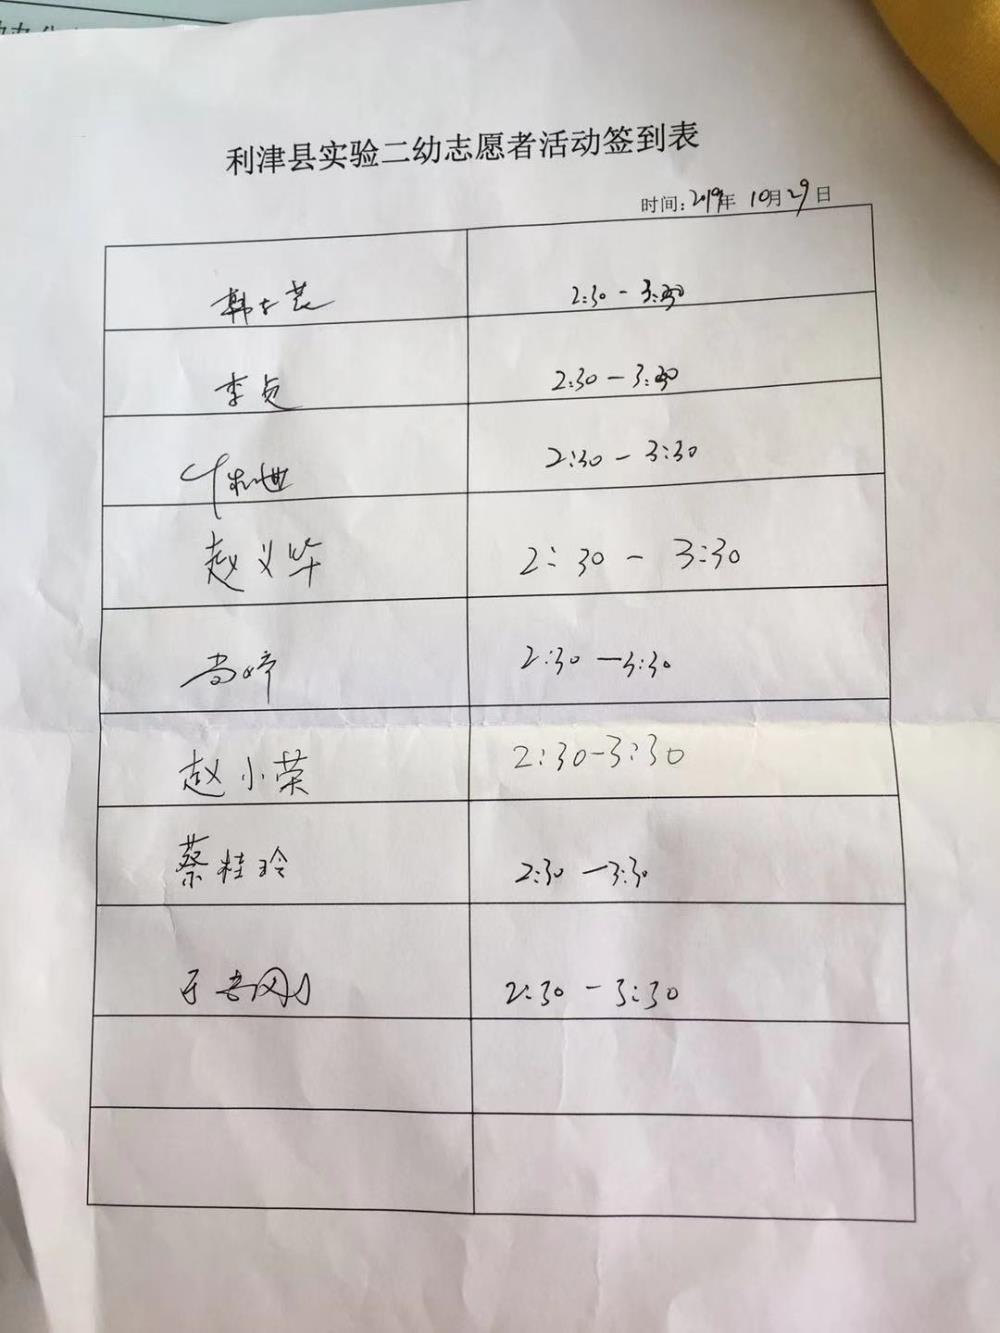 利津县实验二幼志愿者活动签到表
时间:2019年 10月29日
2:30 - 3:30
李贞 2:30 - 3:30
2:30 - 3:30
赵义华 2:30 - 3:30
尚婷 2:30 - 3:30
赵小荣 2:30-3:30
蔡桂玲 2:30 - 3:30
2:30 - 3:30